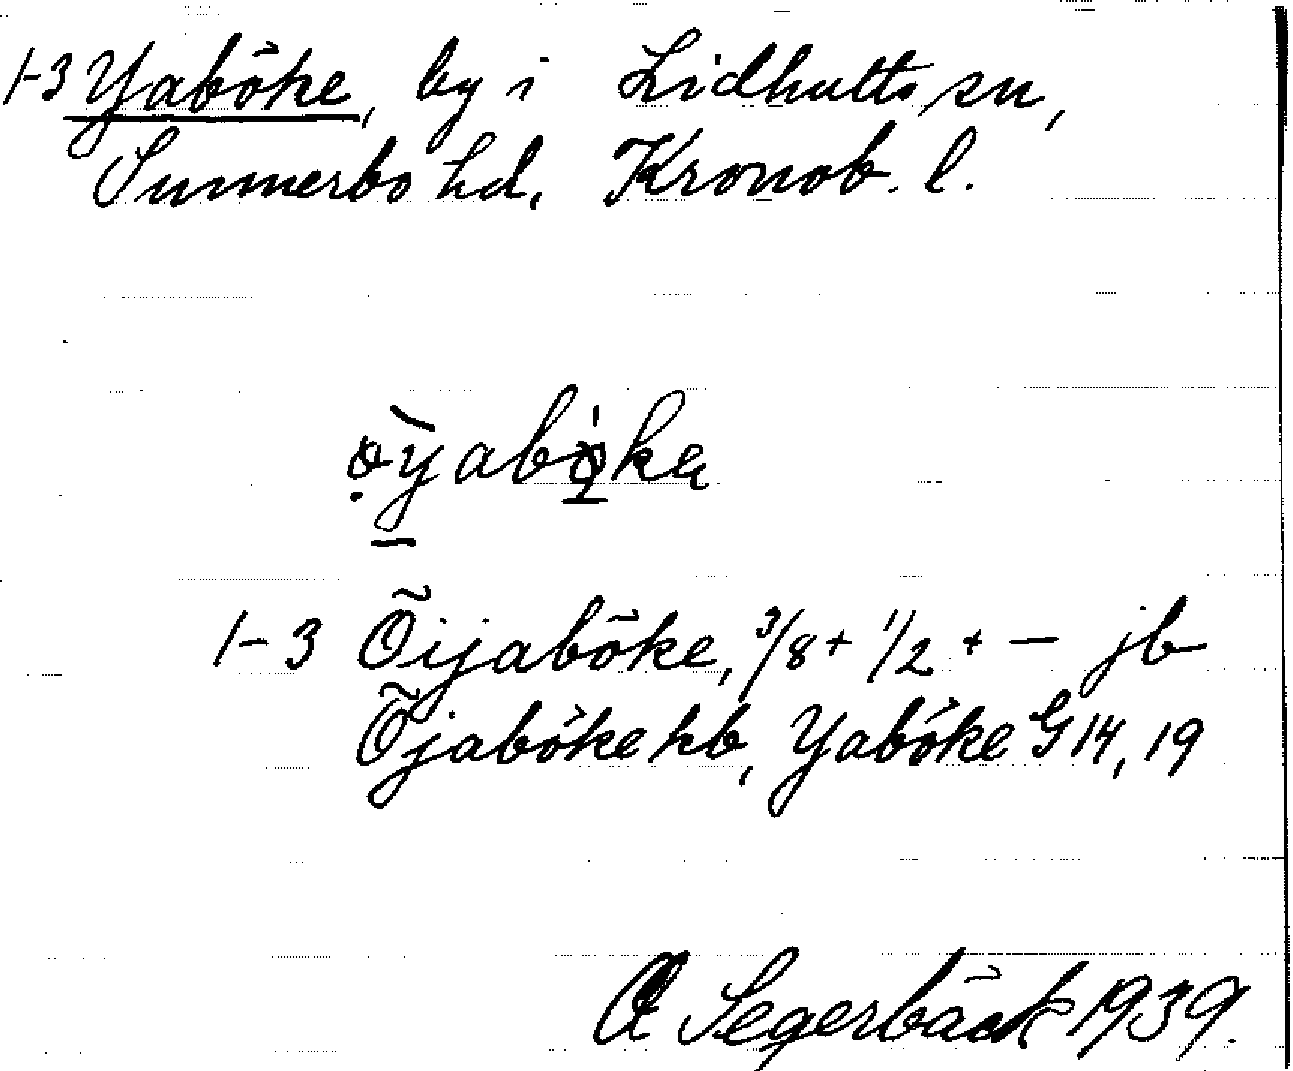 1-3 Yaböke, by i Lidhults sn,
Sunnerbo hd, Kronob. l.
øyabøka
1-3 Öijaböke, 3/8 + 1/2 + — jb
Öjaböke hb, Yaböke G 14, 19
A Segerbäck 1939.